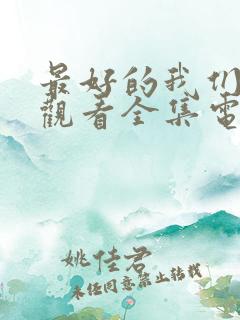 最好的我们
觀看全集電
姚佳君
未任同意禁止转载